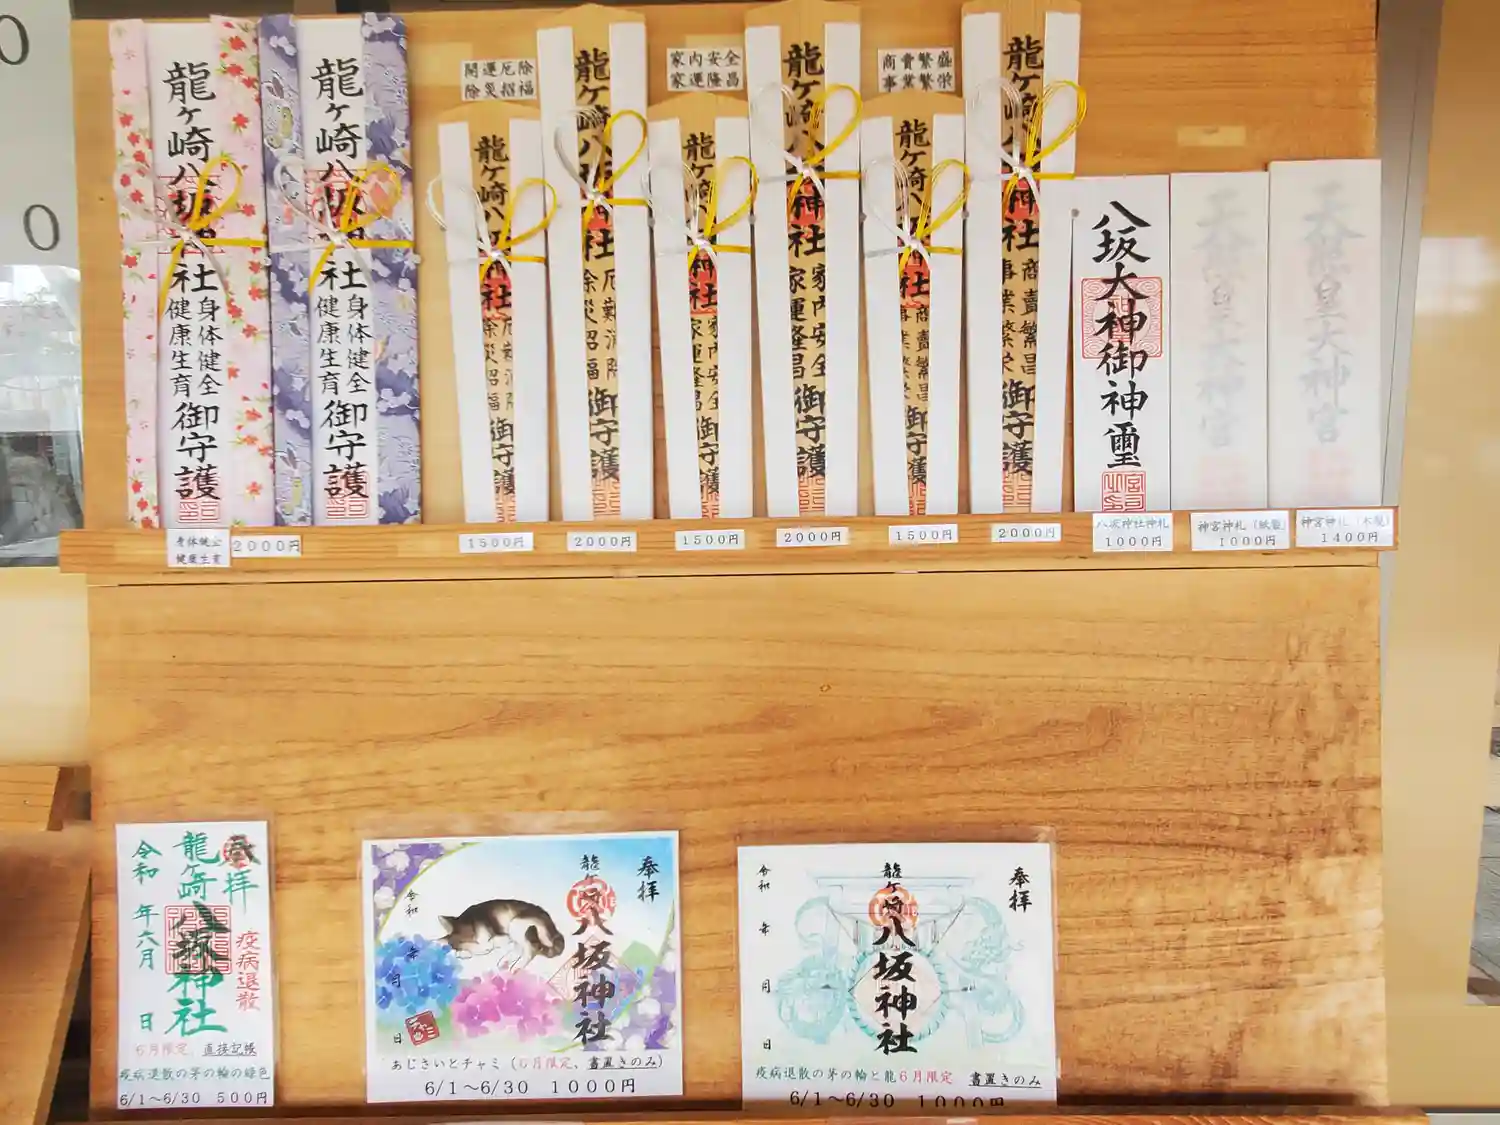 0
0
龍ヶ崎八坂神社
身体健全
健康生育
御守護
龍ヶ崎八坂神社
身体健全
健康生育
御守護
開運厄除
除災招福
龍ヶ崎八坂神社
厄難消除
除災招福
御守護
龍ヶ崎八坂神社
厄難消除
除災招福
御守護
家内安全
家運隆昌
龍ヶ崎八坂神社
家内安全
家運隆昌
御守護
龍ヶ崎八坂神社
家内安全
家運隆昌
御守護
商売繁盛
事業繁栄
龍ヶ崎八坂神社
商賣繁昌
事業繁栄
御守護
龍ヶ崎八坂神社
商賣繁昌
事業繁栄
御守護
八坂大神御神璽
天照皇大神宮
天照皇大神宮
身体健全
健康生育
2000円
1500円
2000円
1500円
2000円
1500円
2000円
八坂神社神札
1000円
神宮神札（紙製）
1000円
神宮神札（木製）
1400円
奉拝
龍ヶ崎
八坂神社
疫病退散
令和 年六月 日
6月限定、直接記帳
疫病退散の茅の輪の緑色
6/1～6/30 500円
奉拝
龍ヶ崎
八坂神社
令和 年 月 日
チャミ
あじさいとチャミ（6月限定、書置きのみ）
6/1～6/30 1000円
奉拝
龍ヶ崎
八坂神社
令和 年 月 日
疫病退散の茅の輪と龍6月限定 書置きのみ
6/1～6/30 1000円